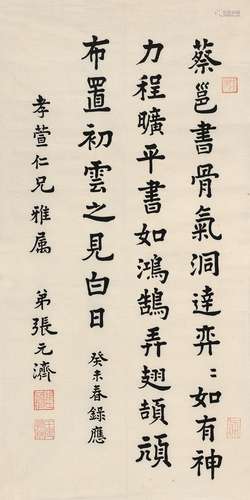 蔡邕書骨氣洞達弈〻如有神
力程曠平書如鴻鵠弄翅頡頏
布置初雲之見白日
癸未春錄應
孝萱仁兄雅属
弟張元濟